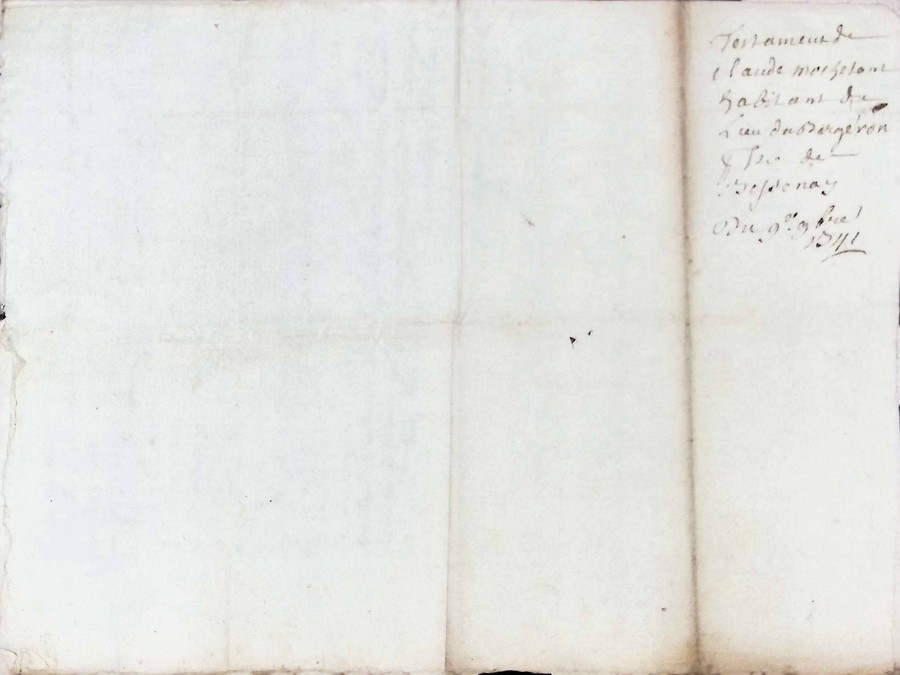 Testament de
Claude mochetant
habitant du
Lieu du Bergeron
psse de
Bessenay
Du 9e 9bre
1741